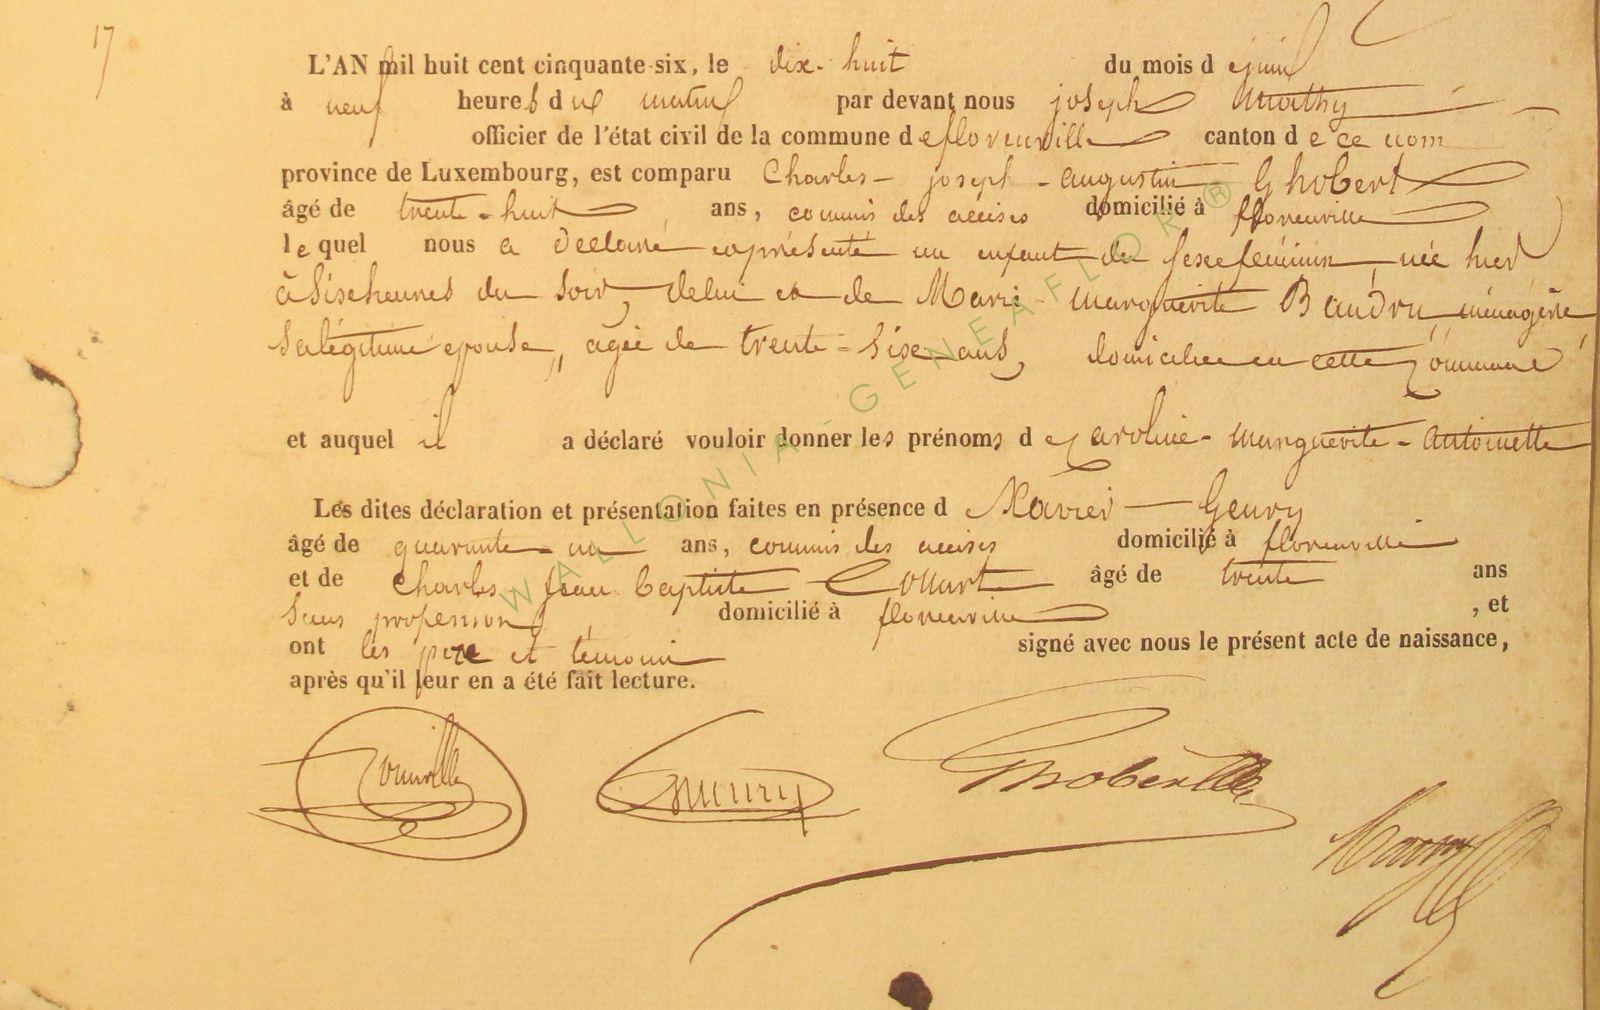 17
L'AN mil huit cent cinquante-six, le dix-huit du mois de juin
à neuf heures du matin par devant nous joseph
officier de l'état civil de la commune de florenville canton de ce nom
province de Luxembourg, est comparu Charles-joseph-augustin Ghobert
âgé de trente-huit ans, commis des accises domicilié à florenville
lequel nous a déclaré et présenté un enfant du sexe féminin, née hier
à six heures du soir, de lui et de Marie-marguerite Baudru, ménagère
sa légitime épouse, agée de trente-six ans, domiciliée en cette Commune
et auquel il a déclaré vouloir donner les prénoms de Caroline-marguerite-antoinette
Les dites déclaration et présentation faites en présence d Xavier Geury
âgé de quarante-un ans, commis des accises domicilié à florenville
et de Charles jean baptiste âgé de trente ans
sans profession, domicilié à florenville, et
ont les père et témoins signé avec nous le présent acte de naissance,
après qu'il leur en a été fait lecture.
WALLONIA GENEAFLOR ®